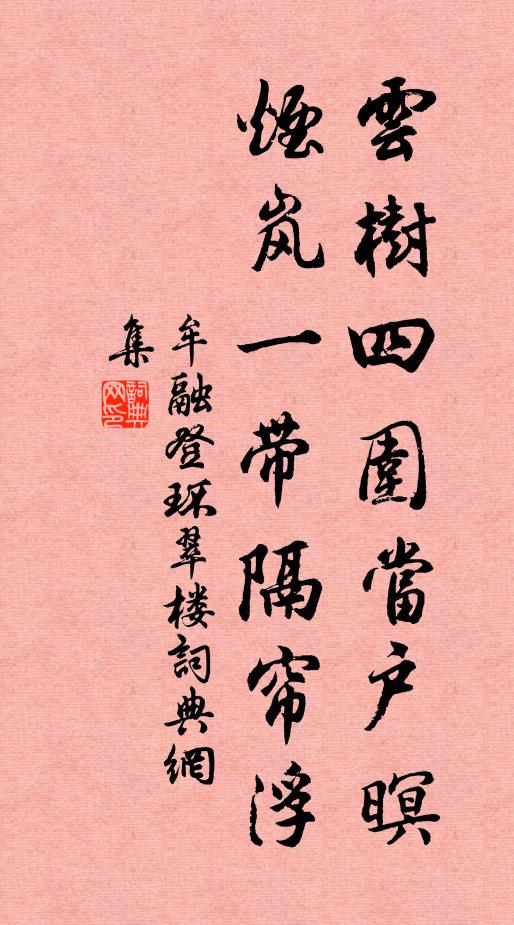 雲樹四圍當户暝
煙岚一带隔帘浮
牟融登环翠楼詞典網
集
詞典网印